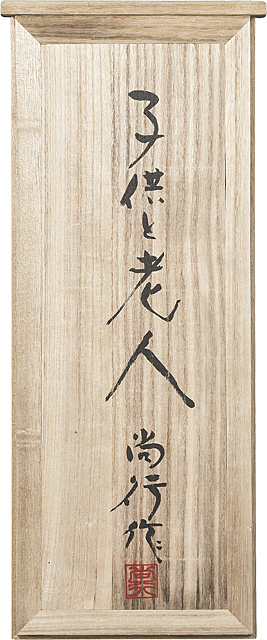 子供と老人
尚行作